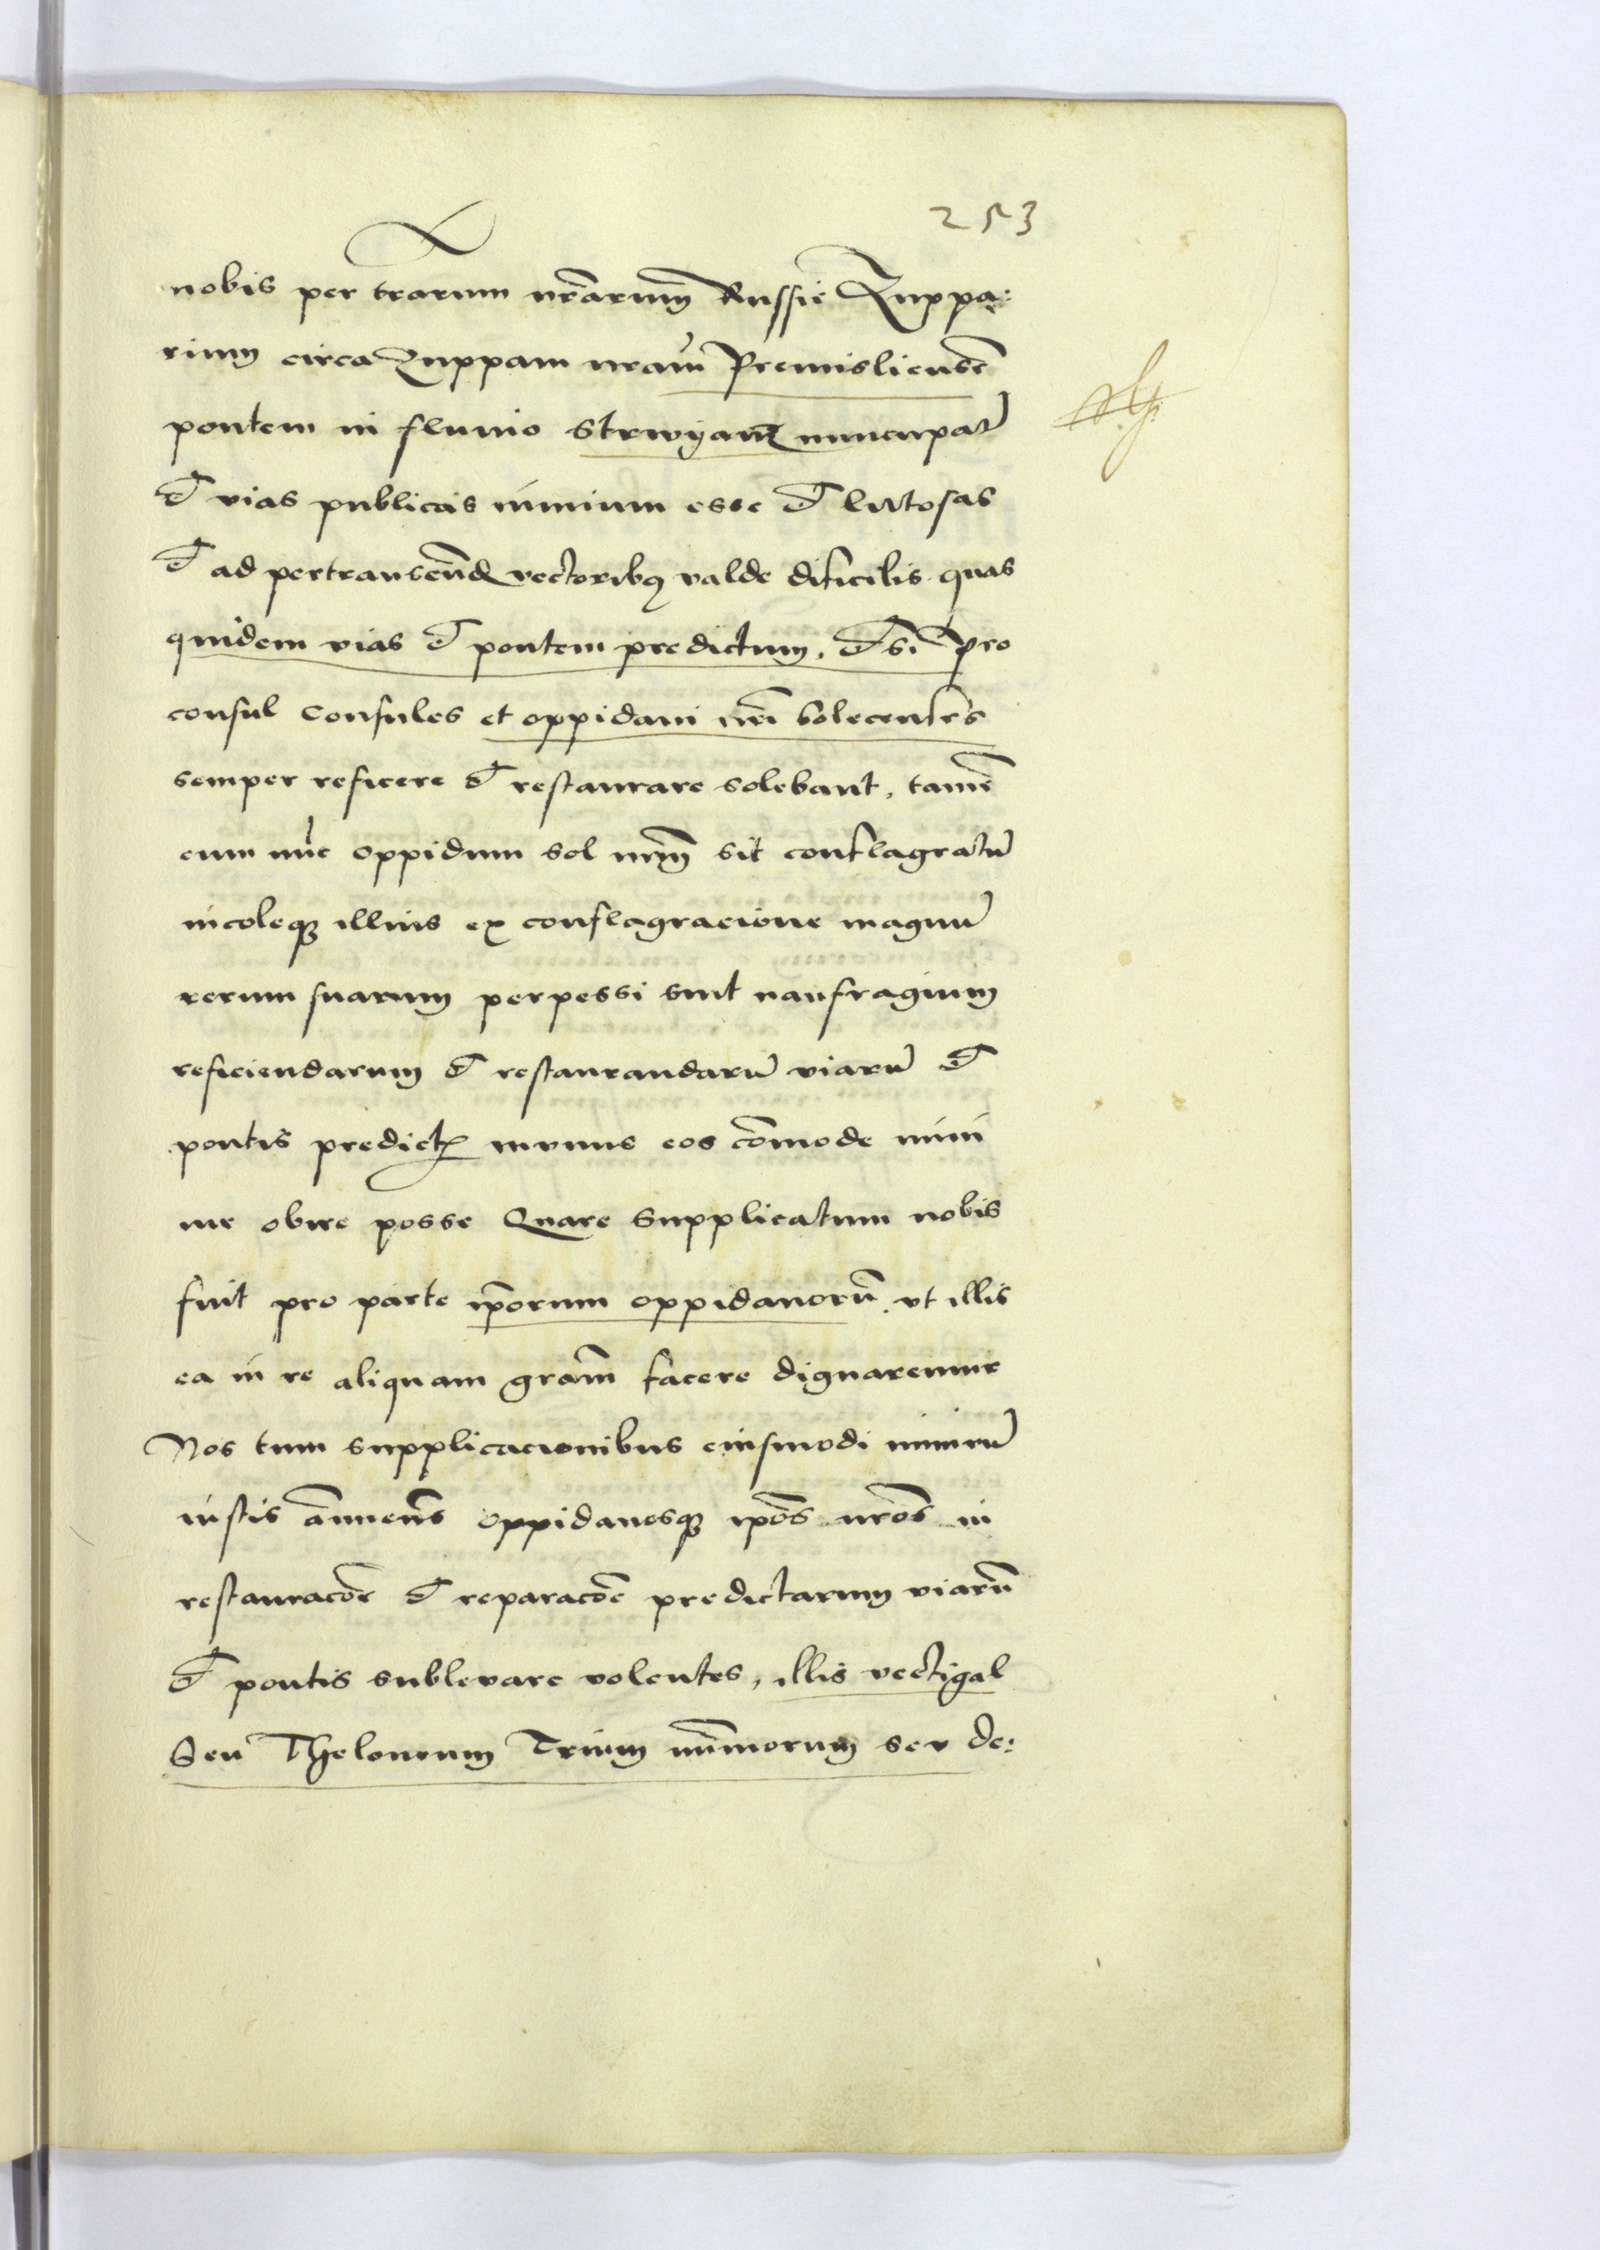 253
nobis per trarum nrarum Russie Zuppa:
rium circa Zuppam nram Premisliensem
pontem in fluvio Strwyanz nuncupatu
et vias publicas nimium esse et lutosas
et ad pertranseund vectoribus valde dificilis quas
quidem vias et pontem predictum, etsi pro
consul Consules et oppidani nri solecenses
semper reficere et restaurare solebant, tame
cum nuc oppidum sol nrm sit conflagratu
incoleque illius ex conflagracione magnu
rerum suarum perpessi sint naufragium
reficiendarum et restaurandaru viaru et
pontis predicti munus eos comode mini
me obire posse Quare supplicatum nobis
fuit pro parte iporum oppidanoru, ut illis
ea in re aliquam gram facere dignaremur
Nos tum supplicacionibus eiusmodi nimiru
iustis annuens oppidanosque ipos nros in
restauracoe et reparacoe predictarum viaru
et pontis sublevare volentes, illis vectigal
Seu Theloneum Trium nummorum seu de: